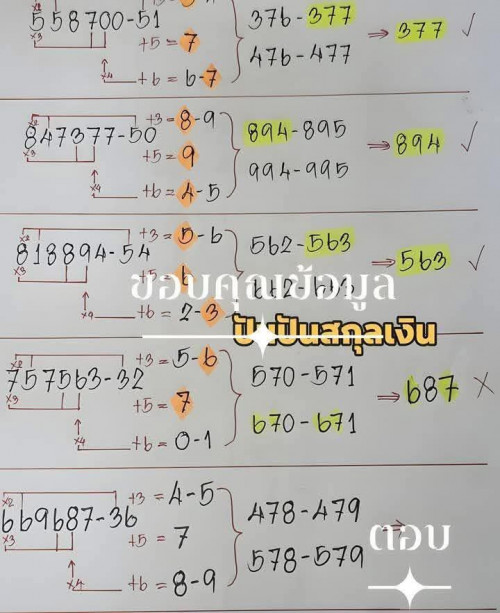 558700-51
x3
+5 = 7
x4
+6 = 6-7
376-377
476-477
⇒ 377 ✓
x2
+3 = 8-9
847377-50
x3
+5 = 9
x9
+6 = 4-5
894-895
994-995
⇒ 894 ✓
x2
+3 = 5-6
818894-54
x3
+5 = 6
x9
+6 = 2-3
562-563
662-663
⇒ 563 ✓
ขอบคุณเข้อมูล
ปันปันสกุลเงิน
x2
+3 = 5-6
757563-32
x3
+5 = 7
x4
+6 = 0-1
570-571
670-671
⇒ 687 ✗
x2
+3 = 4-5
669687-36
x3
+5 = 7
x4
+6 = 8-9
478-479
578-579
⇒
ตอบ